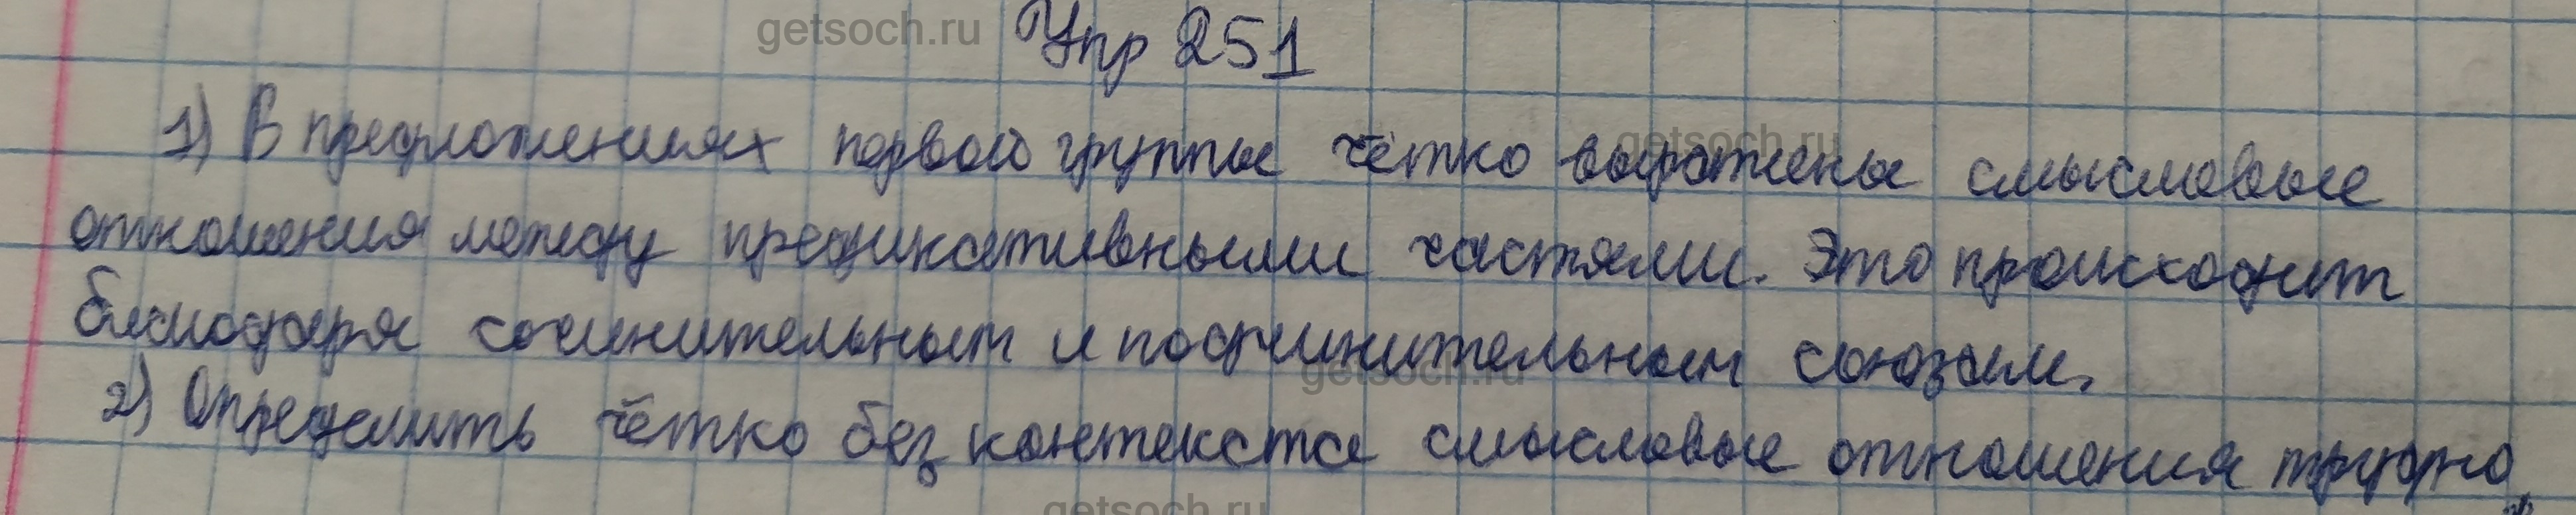 Упр 251
1) В предложениях первой группы чётко выражены смысловые
отношения между предикативными частями. Это происходит
благодаря сочинительным и подчинительным союзам.
2) Определить чётко без контекста смысловые отношения трудно,
getsoch.ru
getsoch.ru
getsoch.ru
getsoch.ru